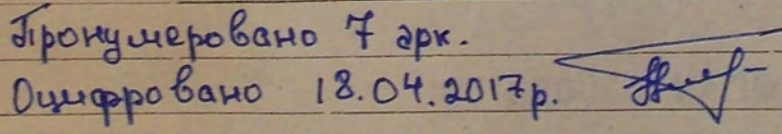 Пронумеровано 7 арк.
Оцифровано 18.04.2017р.